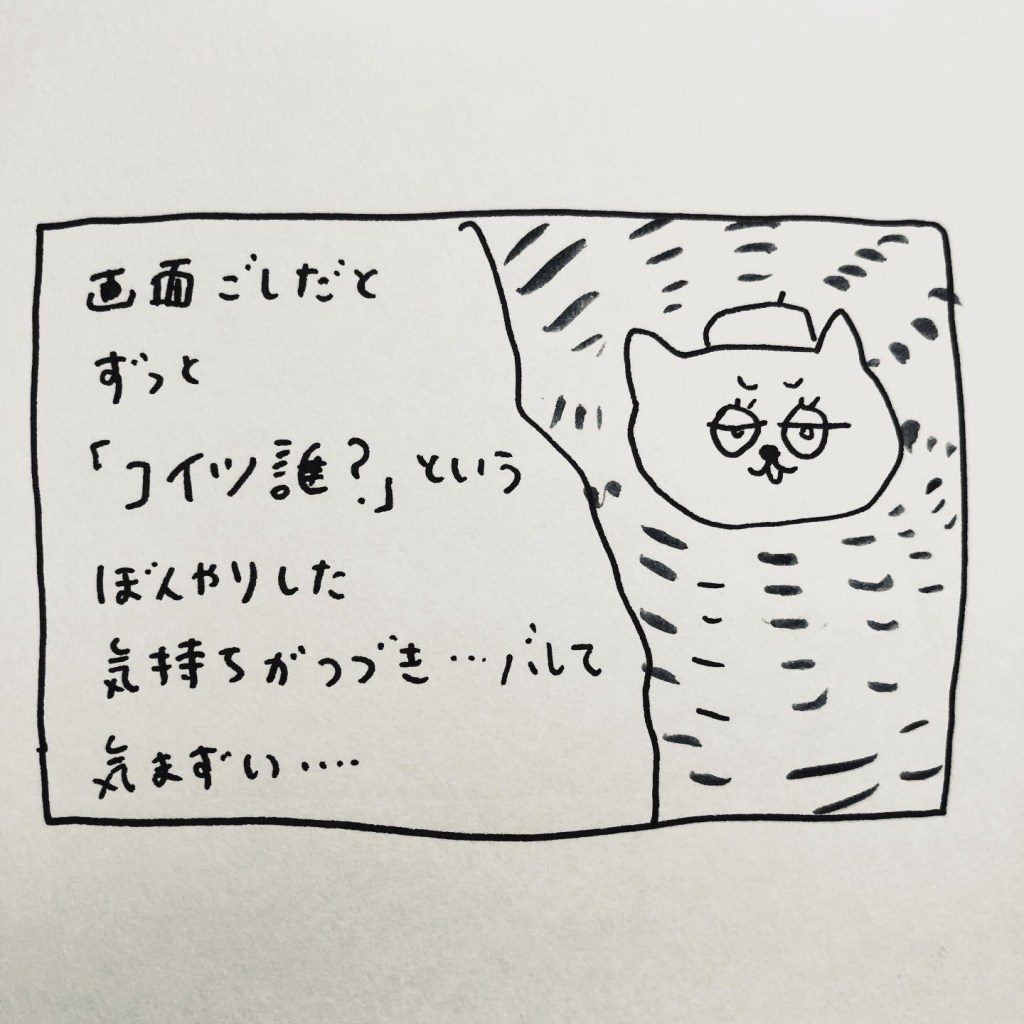 画面ごしだと
ずっと
「コイツ誰?」という
ぼんやりした
気持ちがつづき…バして
気まずい‥‥